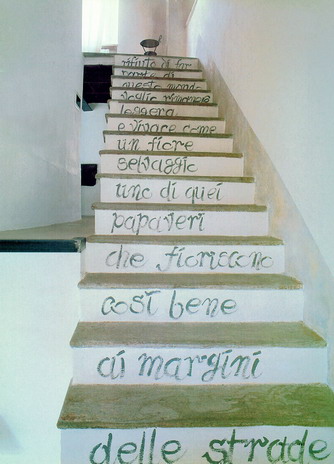 rifiuto di far
parte di
questo mondo
voglio rimanere
leggera
e vivace come
un fiore
selvaggio
uno di quei
papaveri
che fioriscono
così bene
ai margini
delle strade